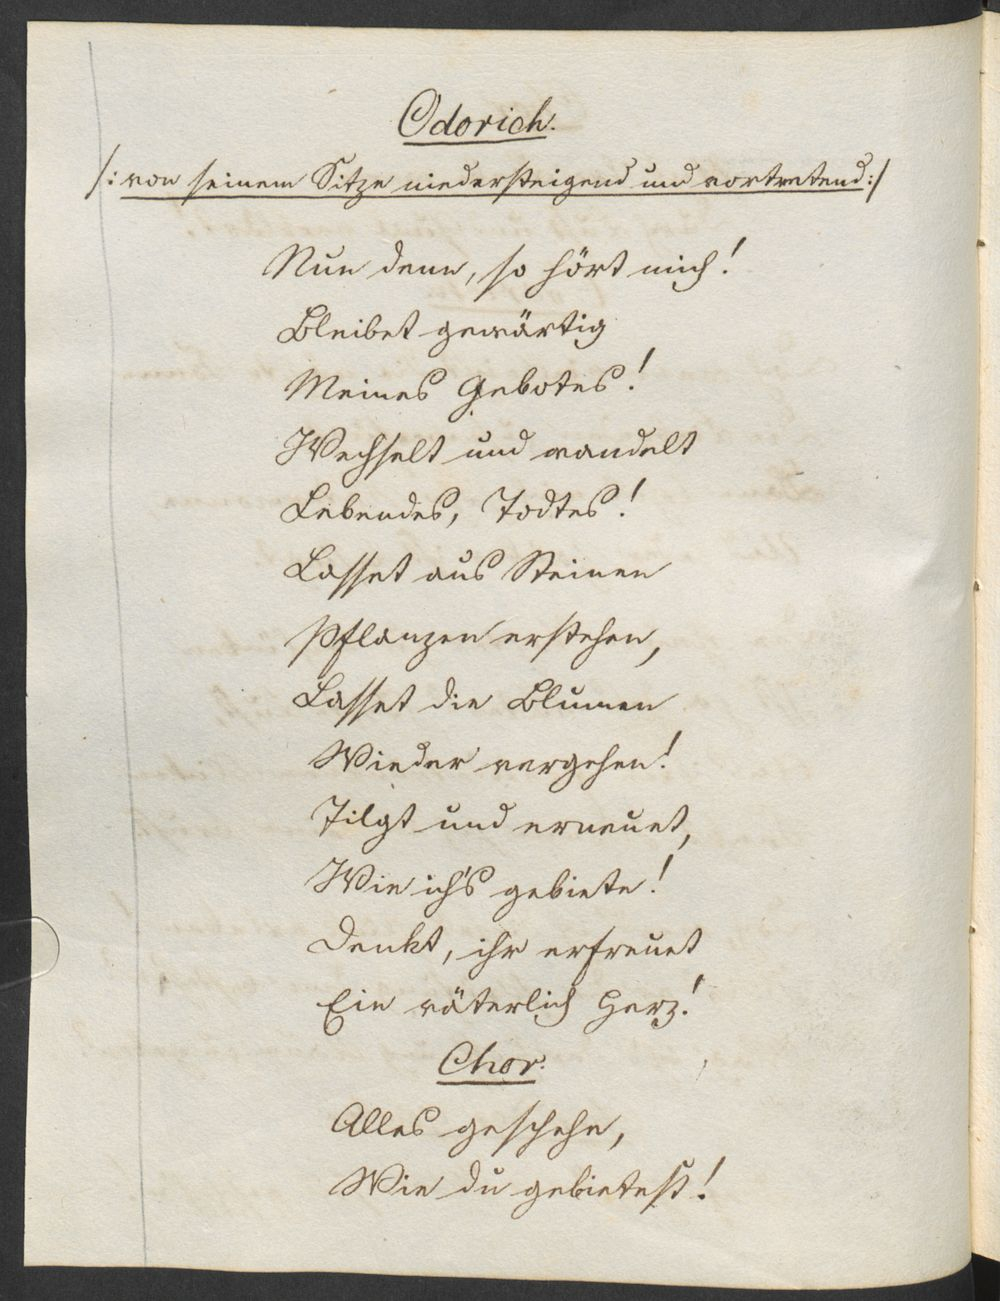 Odorich.
/: von seinem Sitze niedersteigend und vortretend :/
Nun denn, so hört mich!
Bleibet gewärtig
Meines Gebotes!
Wechselt und wandelt
Lebendes, Todtes!
Lasset aus Steinen
Pflanzen erstehen,
Lasset die Blumen
Wieder vergehen!
Tilgt und erneuet,
Wie ich's gebiete!
Denkt, ihr erfreuet
Ein väterlich Herz!
Chor.
Alles geschehe,
Wie du gebietest!